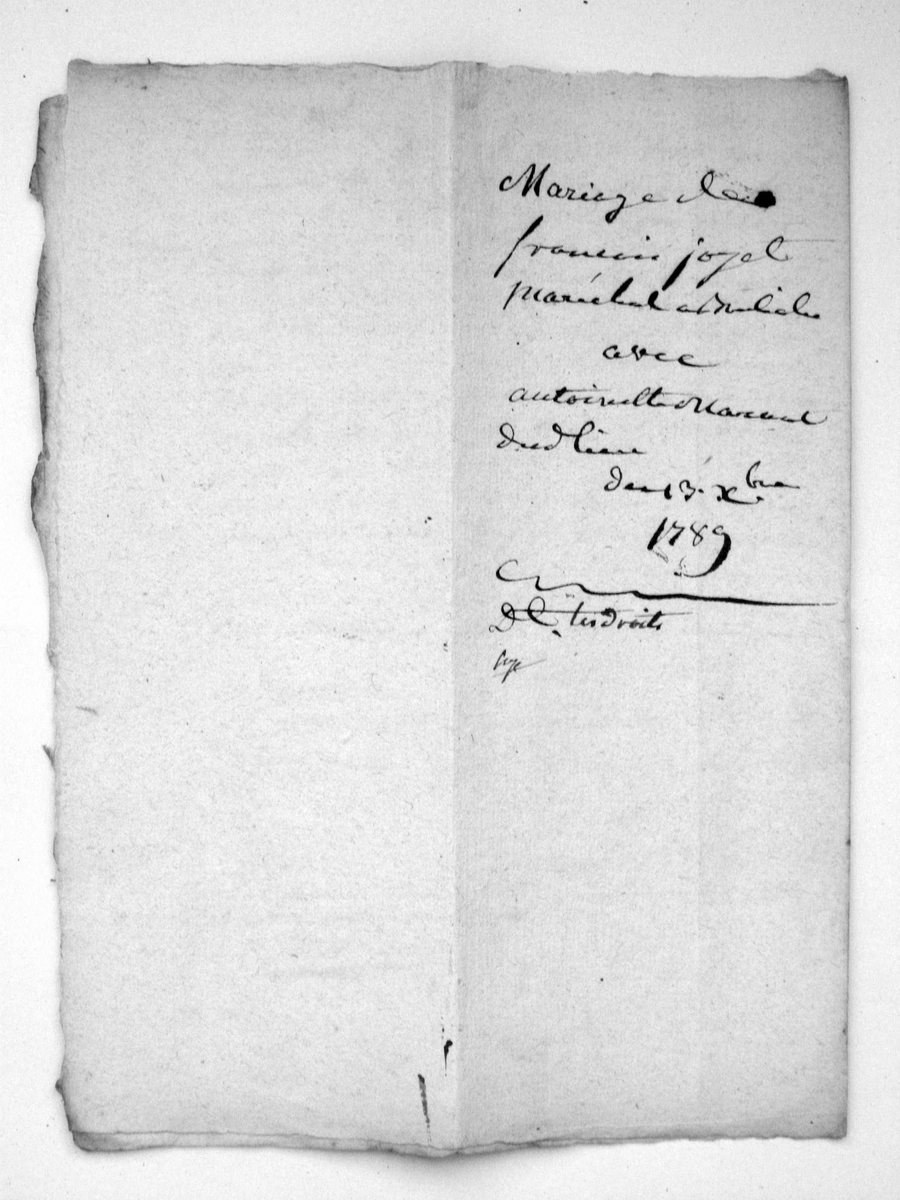 Mariage de
francois joyet
maréchal a
avec
antoinette
dud lieu
du 13. Xbre
1789
les droits